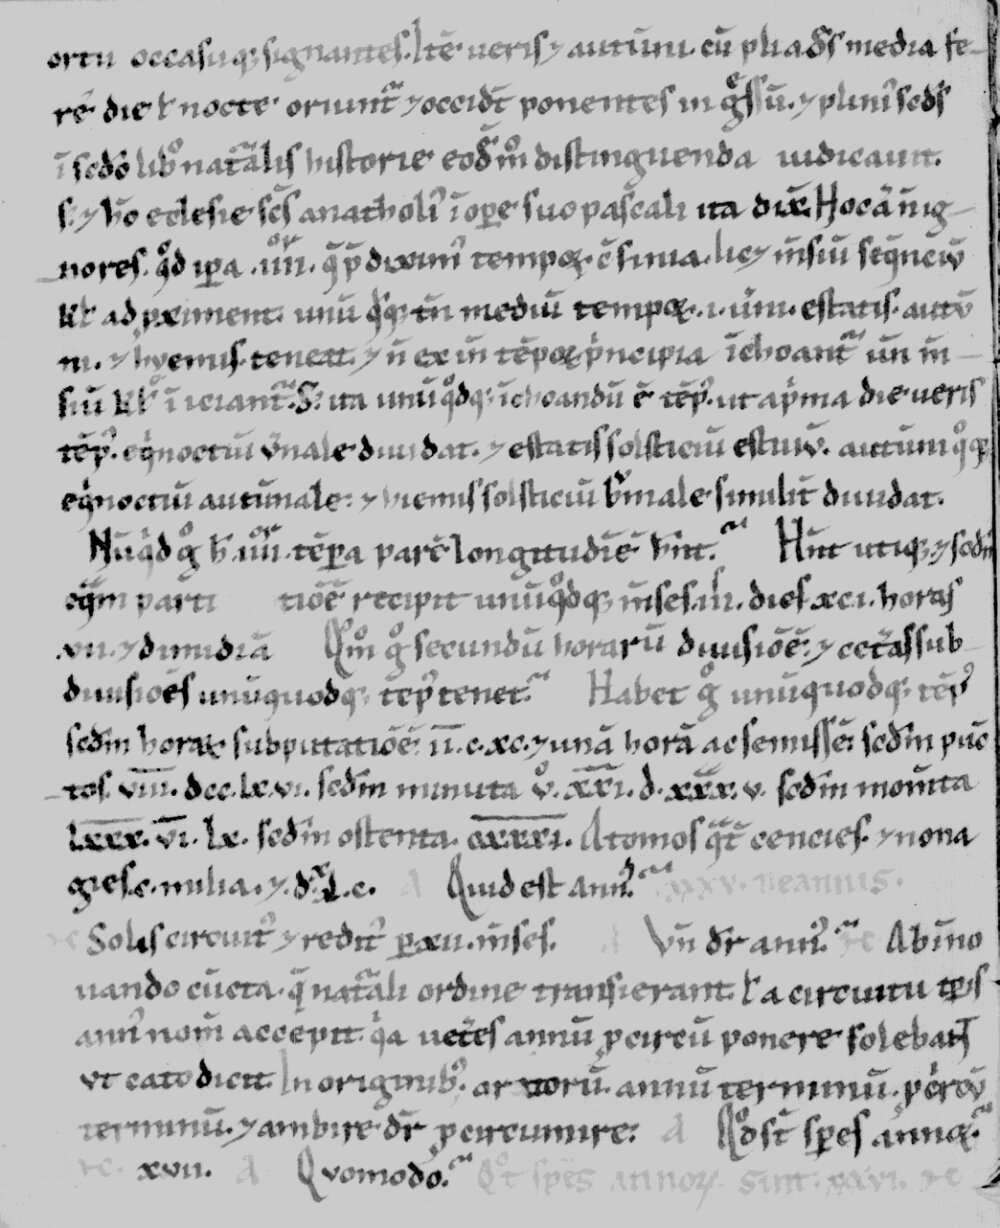 ortu occasuq; signantes. Itē ueris ⁊ autūni. cū pliadēs media fe-
re die ł nocte oriunt̄ ⁊ occidt̄ ponentes in g̊ssū. ⁊ pliniꝰ sedʼs
ī sedo libº nat̄alis historie eod̄ mº distinguenda iudicauit.
S; ⁊ hº eclesie scs̄ anatholiꝰ ī oꝑe suo pascali ita dix̄. Hoc aū nō ig-
nores. qd̊ ip̄a .iiiiºʳ. q̄ p̄diximꝰ tempoꝝ cōfinia. lic⁊ m̄siū seq̄nciū
kł adp̄ximent. unū qͥq; tn̄ mediū tempoꝝ .i. ūni. estatis. autū
ni. ⁊ hyemis tenet. ⁊ n̄ ex in tēpoꝝ pͥncipia īchoant̄ un̄ m̄
siū kł īiciant̄. S; ita unūqd̊q; īchoandū ē tēpꝰ. ut a pͥma die ueris
tēpꝰ. eqͥnoctiū ūnale diuidat. ⁊ estatis solsticiū estiuū. autūni qº q;
eqͥnoctiū autūnale: ⁊ hiemis solsticiū bͬmale similit̄ diuidat.
Nūqͥd g̊ h̄ .iiiiºʳ. tēp̄a parē longitudinē hn̄t. Hn̄t utiq; ⁊ sedm̄
eq̄m parti tiōē recipit unūqd̊q; m̄ses .iii. dies .xci. horas
.vii. ⁊ dimidiā Qm̊ g̊ secundū horarū diuisiōē: ⁊ cet̄as sub
diuisiōes unūquodq; tēpꝰ tenet. Habet g̊ unūquodq; tēpꝰ
sedm̄ horaꝝ subputatiōē: īī. c. xc. ⁊ unā horā ac semissē: sedm̄ pūc
tos. v̄īīī. dcc. lx. vi. sedm̄ minuta vº. x̄x̄ī. d. xxx. v. sedm̄ mom̄ta
l̄x̄x̄x̄. v̄ī. lx. sedm̄ ostenta. c̄x̄x̄x̄ī. Atomos qͣt̄ cencies. ⁊ nona
gies. c. milia. ⁊ d. x. l. c. Quid est annꝰ. xxv. ueannis.
Solis circuitꝰ ⁊ reditꝰ ꝑ xii. m̄ses. Vn̄ dr̄ annꝰ. Ab ino
uando cūcta. q̄ nat̄ali ordine transierant. ł a circuitu tp̄s
annꝰ nom̄ accepit. qͥa uet̄es annū ꝑ circū ponere solebant
vt cato dicit. In originibꝰ. aruorū. annū terminū. ꝑ circū
terminū. ⁊ ambire dr̄ ꝑ circumire: A Qº st̄ sp̄es annoꝝ.
xvii. A Quomodo. Qºt sp̄es annoꝝ sint: